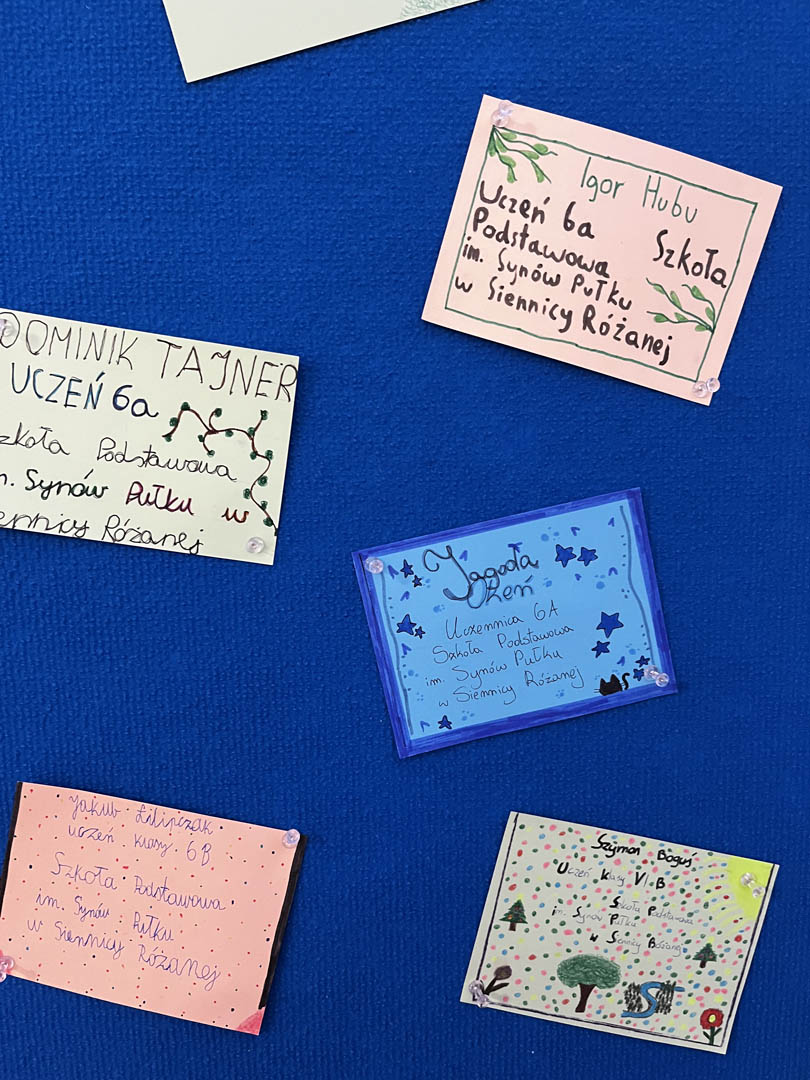 Igor Hubu
Uczeń 6a Szkoła
Podstawowa
im. Synów Pułku
w Siennicy Różanej
DOMINIK TAJNER
UCZEŃ 6a
zkoła Podstawowa
m. Synów Pułku w
iennicy Różanej
Jagoda
Ożeń
Uczennica 6A
Szkoła Podstawowa
im. Synów Pułku
w Siennicy Różanej
Jakub
uczeń klasy 6B
Szkoła Podstawowa
im. Synów Pułku
w Siennicy Różanej
Szymon Boguś
Uczeń Klasy VI B
Szkoła Podstawowa
im. Synów Pułku
w Siennicy Różanej